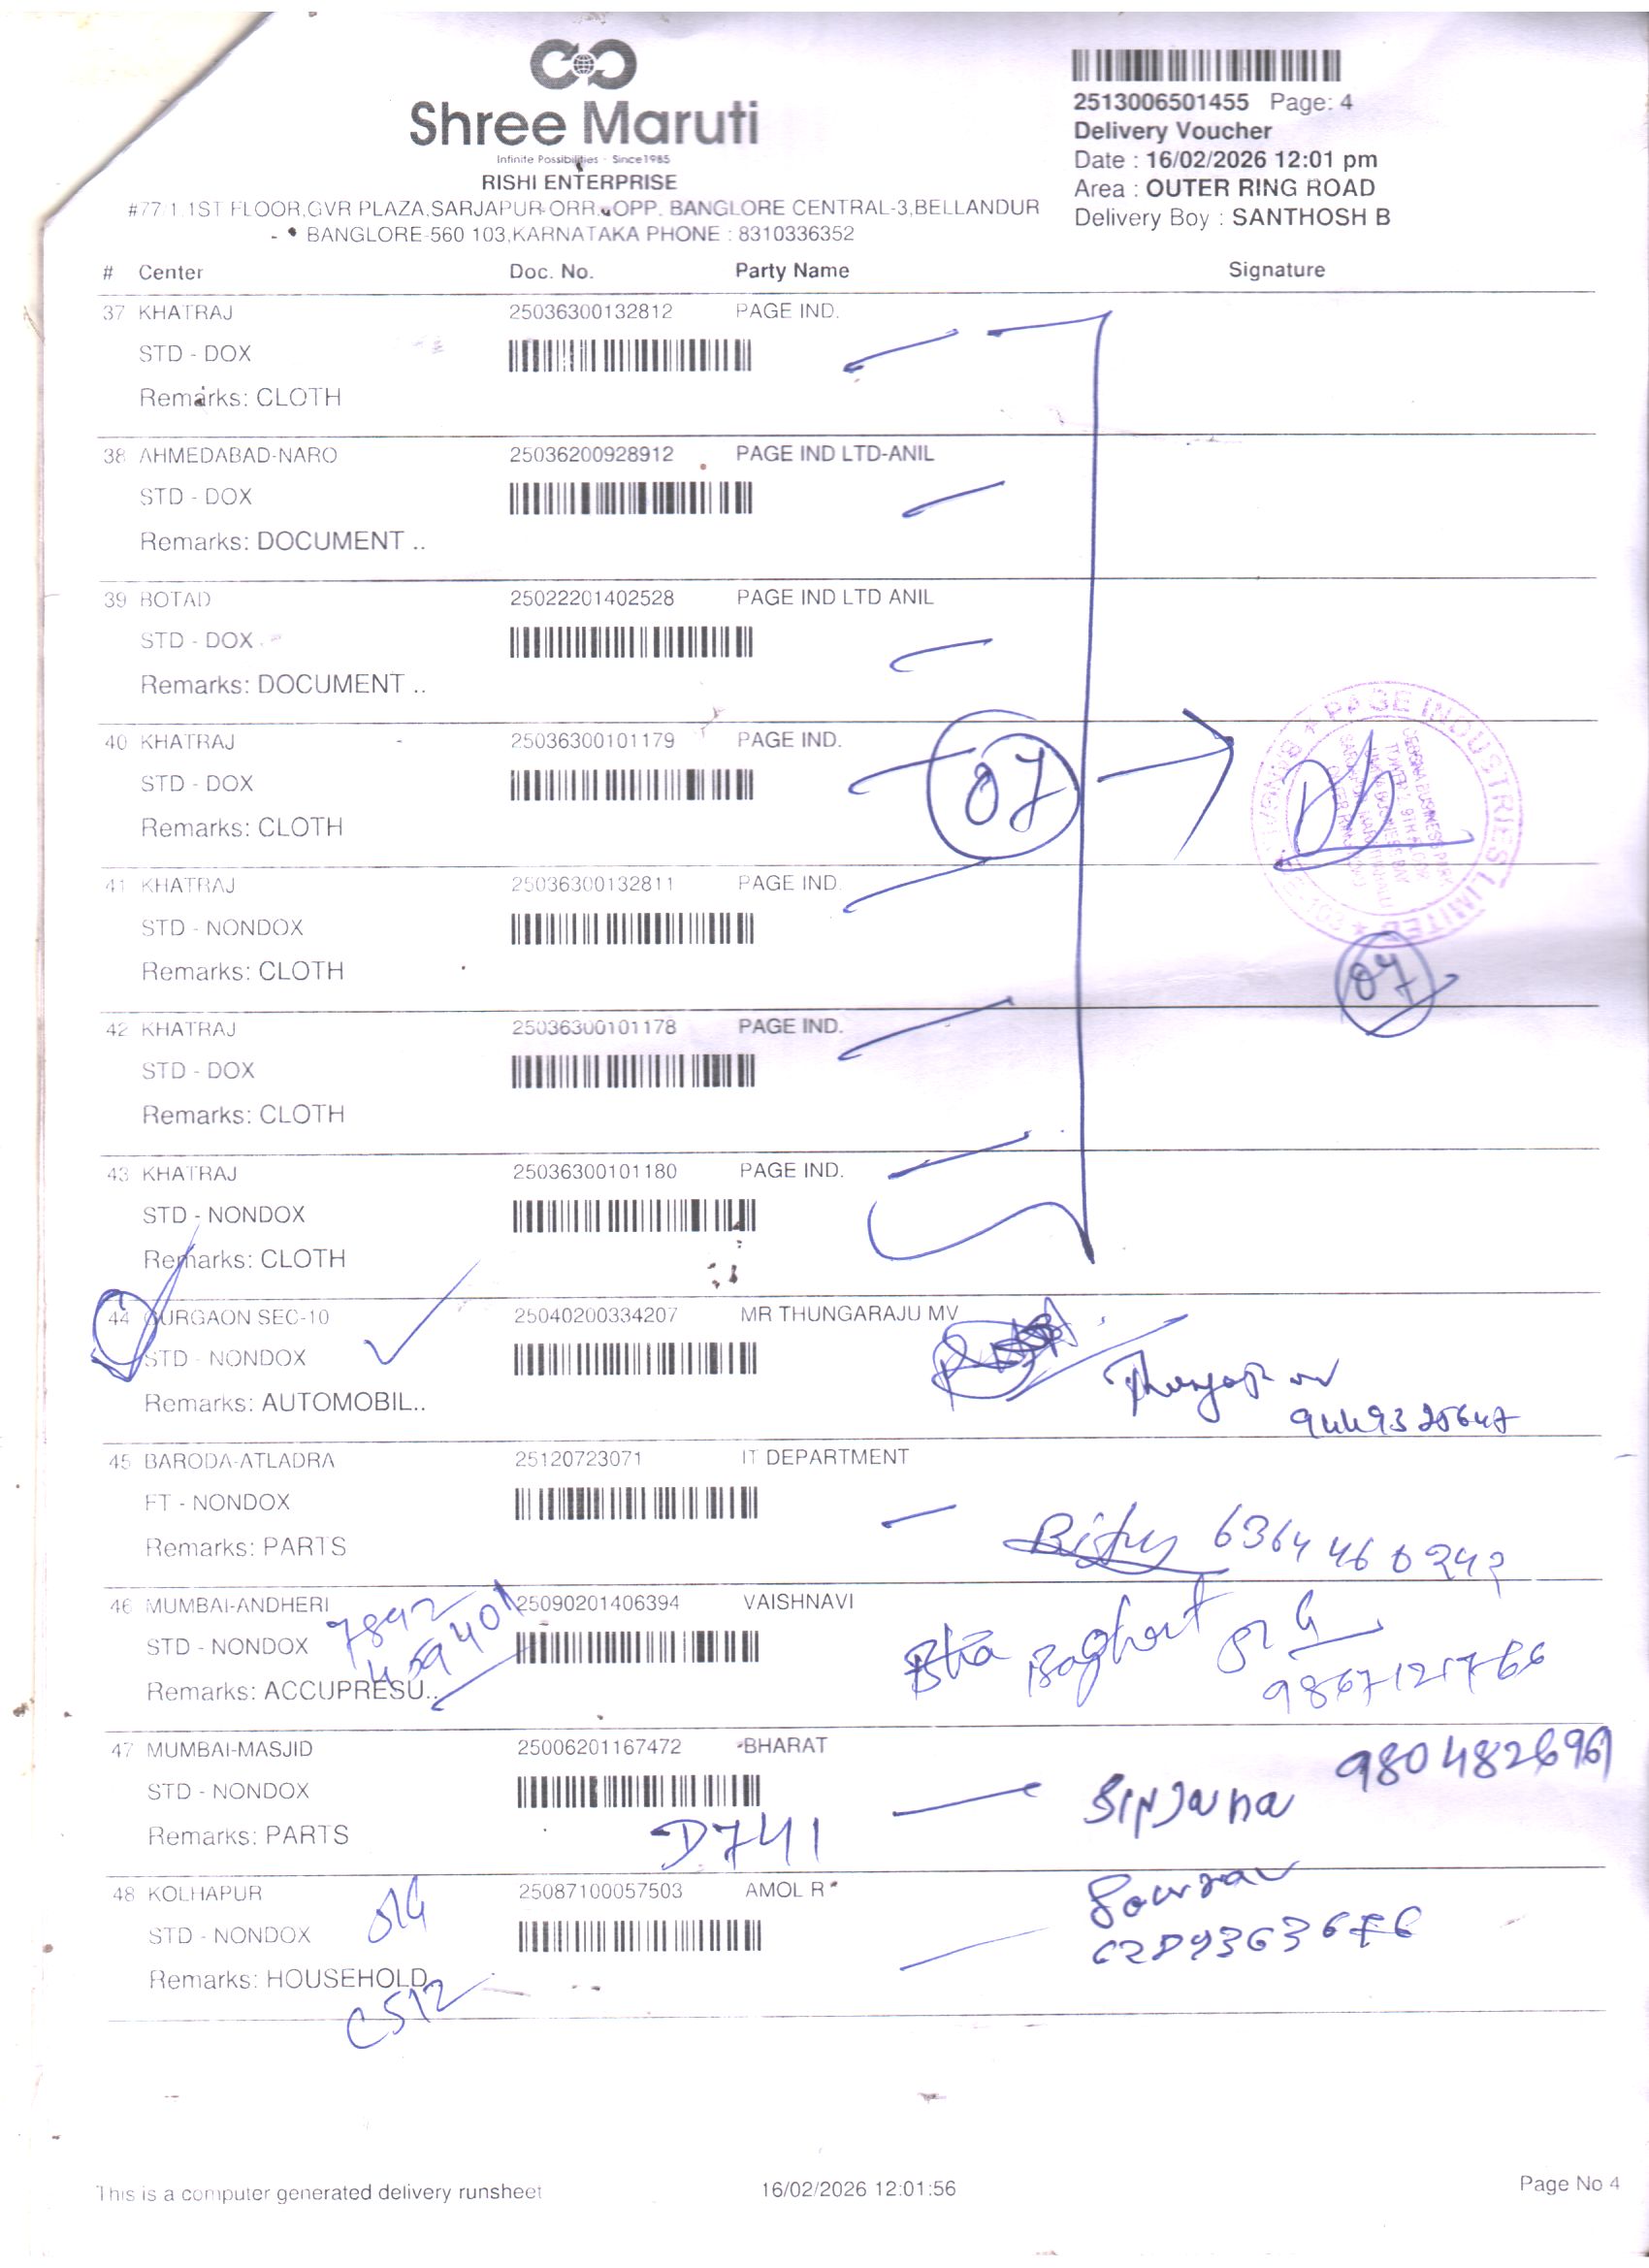 Shree Maruti
Infinite Possibilities · Since1985
RISHI ENTERPRISE
#77/1 1ST FLOOR,GVR PLAZA,SARJAPUR-ORR, OPP. BANGLORE CENTRAL-3,BELLANDUR
BANGLORE-560 103,KARNATAKA PHONE : 8310336352
2513006501455 Page: 4
Delivery Voucher
Date : 16/02/2026 12:01 pm
Area : OUTER RING ROAD
Delivery Boy : SANTHOSH B
# Center Doc. No. Party Name Signature
37 KHATRAJ 25036300132812 PAGE IND.
STD - DOX
Remarks: CLOTH
38 AHMEDABAD-NARO 25036200928912 PAGE IND LTD-ANIL
STD - DOX
Remarks: DOCUMENT ..
39 BOTAD 25022201402528 PAGE IND LTD ANIL
STD - DOX
Remarks: DOCUMENT ..
40 KHATRAJ 25036300101179 PAGE IND.
STD - DOX 07
Remarks: CLOTH
PAGE INDUSTRIES LIMITED
41 KHATRAJ 25036300132811 PAGE IND.
STD - NONDOX
Remarks: CLOTH 07
42 KHATRAJ 25036300101178 PAGE IND.
STD - DOX
Remarks: CLOTH
43 KHATRAJ 25036300101180 PAGE IND.
STD - NONDOX
Remarks: CLOTH
44 GURGAON SEC-10 25040200334207 MR THUNGARAJU MV
STD - NONDOX
Remarks: AUTOMOBIL..
45 BARODA-ATLADRA 25120723071 IT DEPARTMENT
FT - NONDOX
Remarks: PARTS
46 MUMBAI-ANDHERI 25090201406394 VAISHNAVI
STD - NONDOX
Remarks: ACCUPRESU..
47 MUMBAI-MASJID 25006201167472 BHARAT
STD - NONDOX
Remarks: PARTS D741
48 KOLHAPUR 25087100057503 AMOL R
STD - NONDOX
Remarks: HOUSEHOLD
C512
This is a computer generated delivery runsheet 16/02/2026 12:01:56 Page No 4